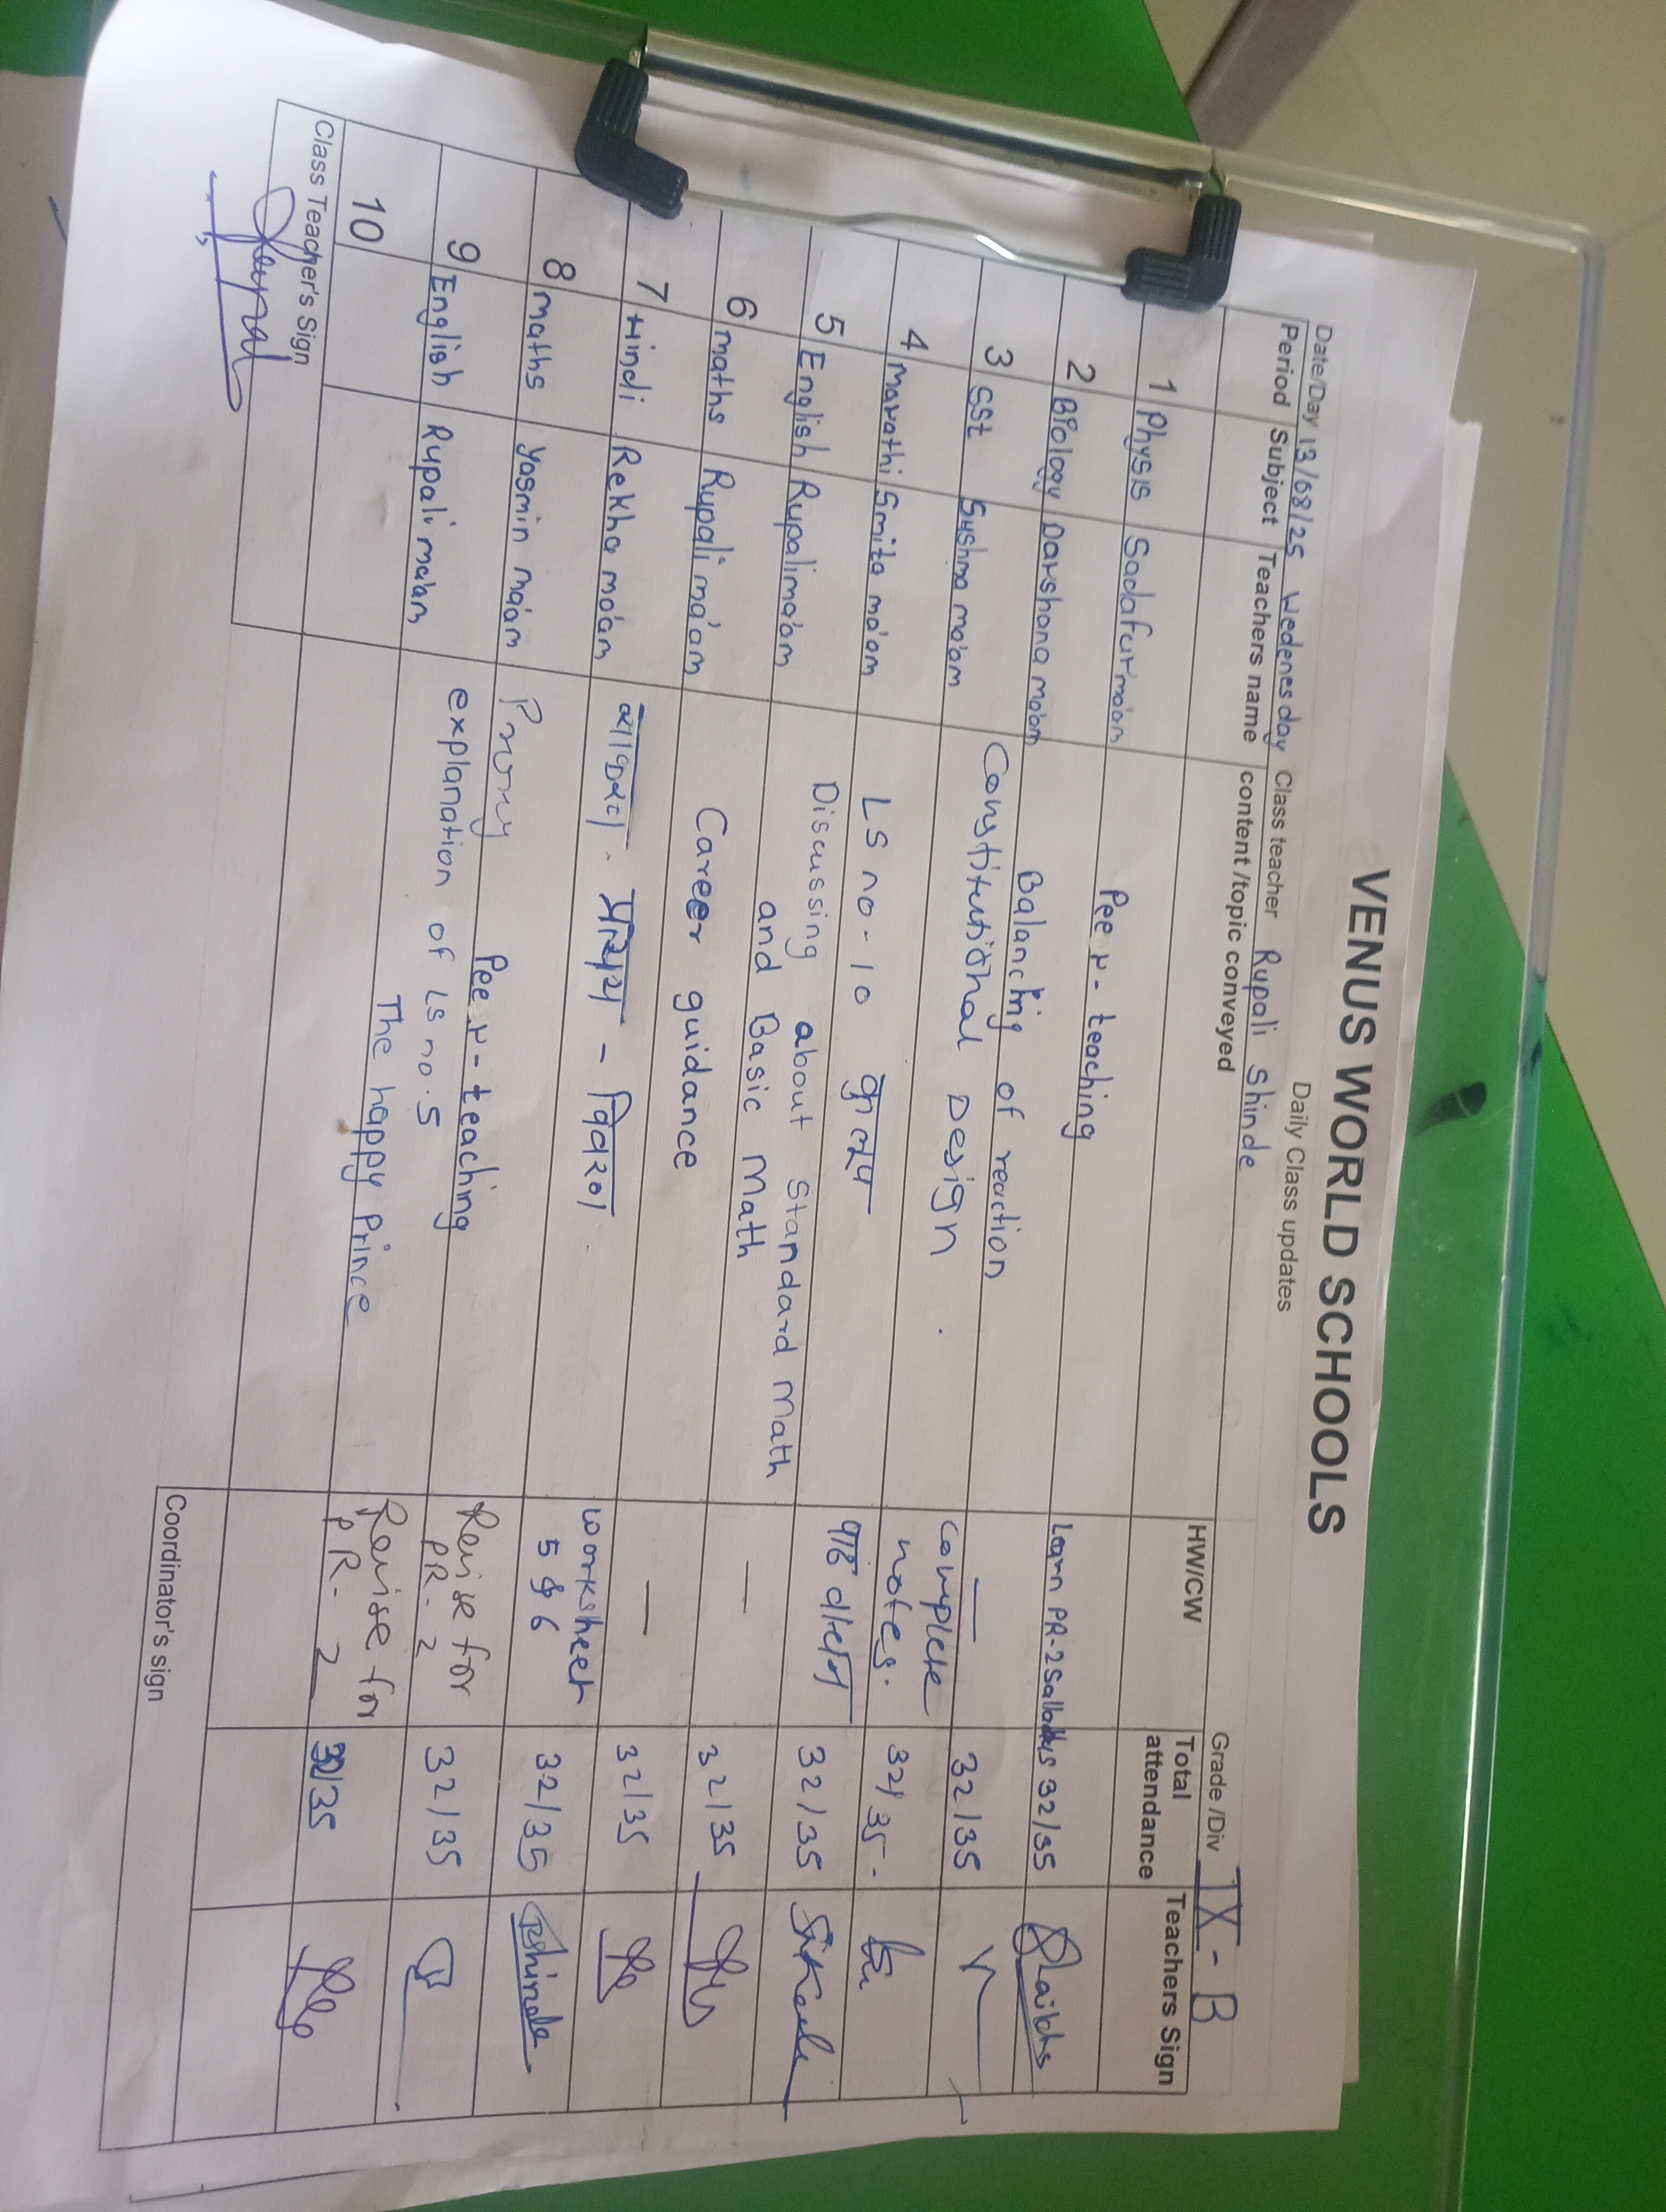 VENUS WORLD SCHOOLS
Daily Class updates
Grade /Div IX - B
Date/Day 13/08/25 Wedenesday Class teacher Rupali Shinde
Period Subject Teachers name content /topic conveyed HW/CW Total attendance Teachers Sign
1 Physis Sadafur ma'am Peer - teaching Learn PR-2 32/35
2 Biology Darshana ma'am Balancing of reaction — 32/35
3 SST Sushma ma'am Constitutional Design complete notes. 32/35.
4 Marathi Smita ma'am LS no - 10 कृत्य पाठ 32/35
5 English Rupali ma'am Discussing about standard math
and Basic Math — 32/35
6 maths Rupali ma'am Career guidance — 32/35
7 Hindi Rekha ma'am प्रत्यय - विवरण. worksheet
5 & 6 32/35 Rshinde
8 maths Yasmin ma'am Proxy Peer - teaching Revise for
PR - 2 32/35
9 English Rupali ma'am explanation of Ls no. 5
The happy Prince Revise for
PR - 2 32/35
10
Class Teacher's Sign
Coordinator's sign